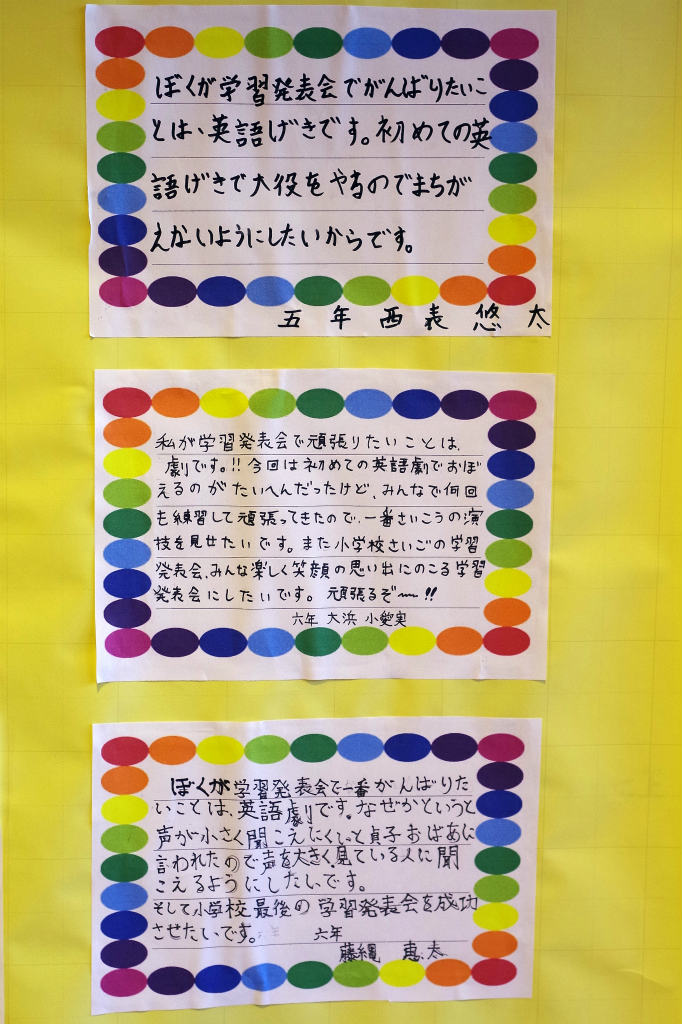 ぼくが学習発表会でがんばりたいこ
とは、英語げきです。初めての英
語げきで大役をやるのでまちが
えないようにしたいからです。
五年 西表 悠太
私が学習発表会で頑張りたいことは、
劇です。!! 今回は初めての英語劇でおぼ
えるのがたいへんだったけど、みんなで何回
も練習して頑張ってきたので、一番さいこうの演
技を見せたいです。また小学校さいごの学習
発表会、みんな楽しく笑顔の思い出にのこる学習
発表会にしたいです。頑張るぞ〜!!
六年 大浜 小愛実
ぼくが学習発表会で一番がんばりた
いことは、英語劇です。なぜかというと
声が小さく聞こえにくいと貞子おばあに
言われたので声を大きく、見ている人に聞
こえるようにしたいです。
そして小学校最後の学習発表会を成功
させたいです。 六年
藤縄 恵太